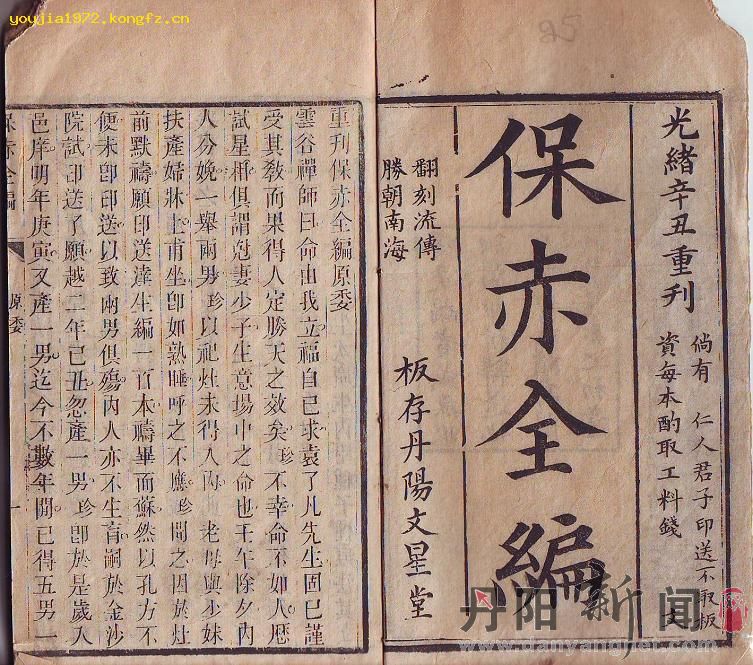 youjia1972.kongfz.cn
25
光緒辛丑重刊
倘有 仁人君子印送不取板
資每本酌取工料錢 文
保赤全編
翻刻流傳
勝朝南海
板存丹陽文星堂
重刊保赤全編原委
雲谷禪師曰命由我立福自己求袁了凡先生固已謹
受其敎而果得人定勝天之效矣珍不幸命不如人歷
試星俱謂尅妻少子生意場中之命也壬午除夕內
人分娩一舉兩男珍以祀灶未得入內老母與少妹
扶產婦牀上甫坐卽如熟睡呼之不應珍聞之因於灶
前默禱願印送達生編一百本禱畢而蘇然以孔方不
便未卽印送以致兩男俱殤內人亦不生育嗣於金沙
院試印送了願越二年己丑忽產一男珍卽於是歲入
邑庠明年庚寅又產一男迄今不數年間已得五男一
保赤全編 原委 一
丹阳新闻
www.danyanghel.com